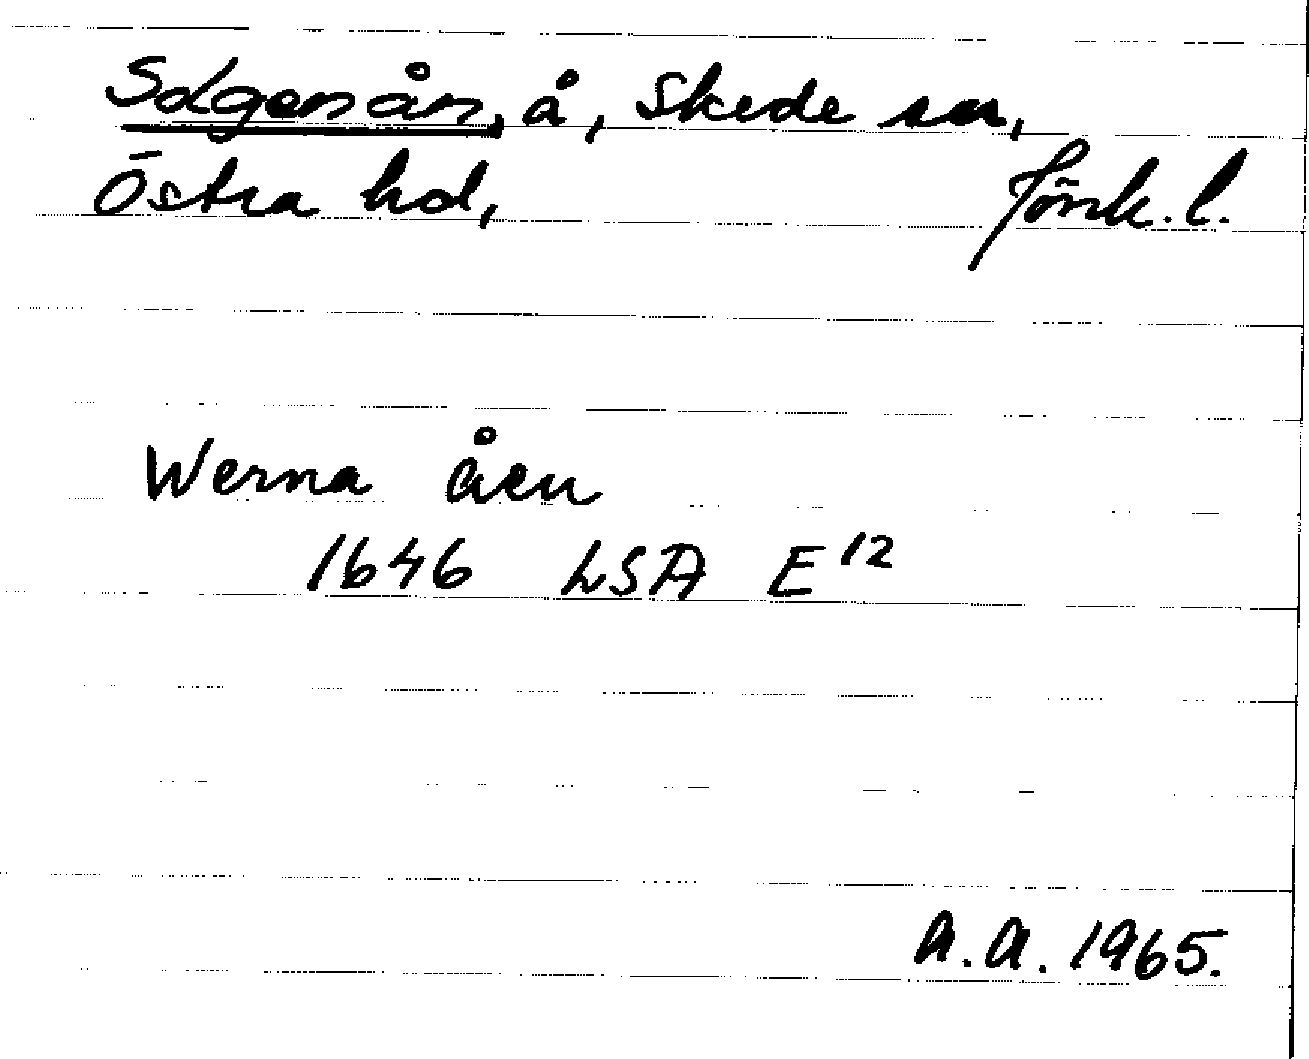 Solgenån, å, Skede sn,
Östra hd, Jönk. l.
Werna åen
1646 LSA E 12
A.A. 1965.